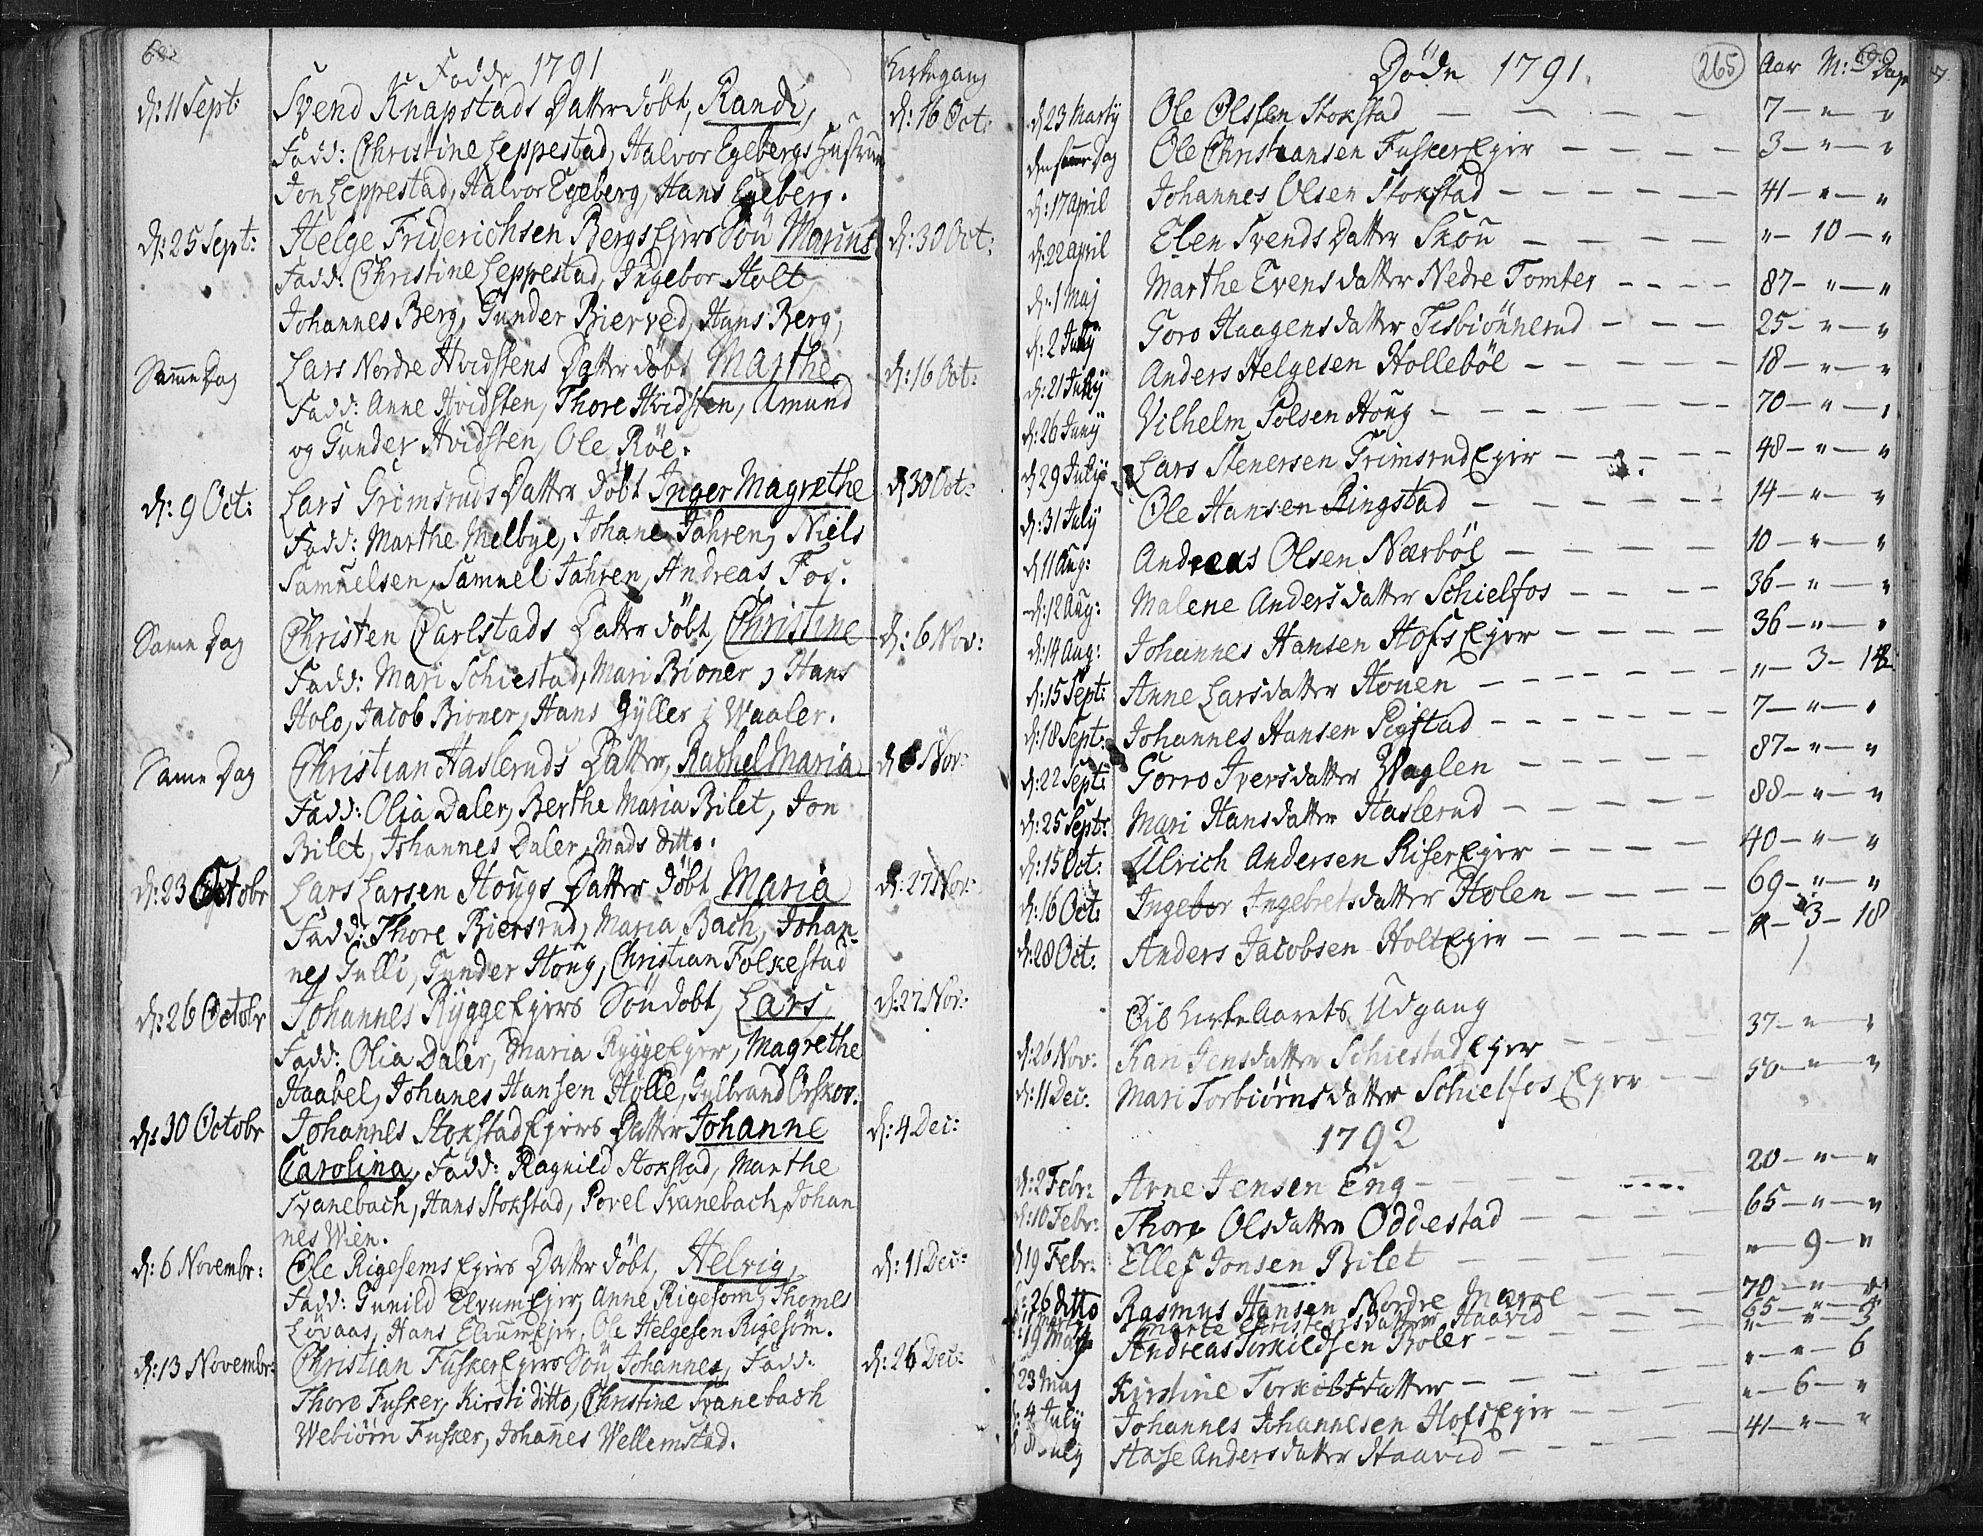 Fødde 1791
Kirkegang
d: 11 Sept: Svend Knapstads Datter döbt, Randi, d: 16 Oct:
Fadd: Christine Leppestad, Halvor Egebergs Hustrue
Jon Leppestad, Halvor Egeberg, Hans Egeberg.
d: 25 Sept: Helge Friderichsen Bergs Ejers Sön d: 30 Oct:
Fadd: Christine Leppestad, Ingebor Holt
Johannes Berg, Gunder Bierved, Hans Berg,
Same Dag Lars Nordre Hvidstens Datter döbt Marthe d: 16 Oct:
Fadd: Anne Hvidsten, Thore Hvidsten, Amund
og Gunder Hvidsten, Ole Röe.
d: 9 Oct: Lars Grimsruds Datter döbt Inger Magrethe d 30 Oct:
Fadd: Marthe Melbye, Johane Jahren, Niels
Samuelsen, Samuel Jahren, Andreas Fos.
Same Dag Christen Carlstads Datter döbt, Christine d: 6 Nov:
Fadd: Mari Schiestad, Mari Bioner, Hans
Holo, Jacob Bioner, Hans Gyller i Waaler.
Same Dag Christian Hasleruds Datter, Rachel Maria d 6 Nov:
Fadd: Olia Daler, Berthe Maria Bilet, Jon
Bilet, Johannes Daler, Mads ditto.
d: 23 Octobr Lars Larsen Hougs Datter döbt Maria d: 27 Nov:
Fadd: Thore Biersrud, Maria Bach, Johan-
nes Gulli, Gunder Houg, Christian Folkestad
d: 26 Octobr Johannes Rygge Ejers Sön döbt, Lars, d: 27 Nov:
Fadd: Olia Daler, Maria Rygge Ejer, Magrethe
Haabel, Johanes Hansen Holle, Gulbrand Orskov.
d: 30 Octobr Johannes Stokstad Ejers Datter Johanne d: 4 Dec:
Carolina, Fadd: Ragnild Stokstad, Marthe
Svanebach, Hans Stokstad, Povel Svanebach, Johan
nes Wien.
d: 6 Novembr: Ole Rigesems Ejers Datter döbt, Helvig, d: 11 Dec:
Fadd: Gunild Elvum Ejer, Anne Rigesom, Thomes
Lövaas, Hans Elvum Ejer, Ole Helgesen Rigesom.
d: 13 Novembr: Christian Fusker Ejers Sön, Johannes, Fadd: d: 26 Dec:
Thore Fusker, Kirsti ditto, Christine Svanebach
Webiörn Fusker, Johanes Wellemstad.
Döde 1791. 265 Aar M: Dage
d 23 Martij Ole Olssen Stokstad — 7 — " "
den samme Dag Ole Christiansen Fusker Ejer — 3 — " — "
d: 17 April Johannes Olsen Stokstad — 41 — " — "
d: 22 April Elen Svends Datter Skou — " — 10 — "
d: 1 Maj Marthe Evensdatter Nedre Tomter — 87 — " — "
d: 2 Goro Haagensdatter Tisbiönnerud — 25 — " — "
d: 21 July Anders Helgesen Hollebôl — 18 — " — "
d: 26 Juny Vilhelm Polsen Houg — 70 — " — "
d: 29 July Lars Stenersen Grimsrud Ejer — 48 — " — "
d: 31 July Ole Hansen Ringstad — 14 — " — "
d 11 Aug: Andreas Olsen Nærböl — 10 — " — "
d: 12 Aug: Malene Andersdatter Schielfos — 36 — " — "
d: 14 Aug: Johannes Hansen Hofs Ejer — 36 — " — "
d: 15 Sept: Anne Larsdatter Houen — " — 3 —
d: 18 Sept: Johannes Hansen — 7 — " — "
d: 22 Sept: Gorro Iversdatter — 87 — " — "
d: 25 Sept: Mari Hansdatter Haslerud — 88 — " — "
d: 15 Oct: Ulrich Andersen Riser Ejer — 40 — " — "
d: 16 Oct: Ingebor Ingebretsdatter Holen — 69 — " — "
d: 28 Oct: Anders Jacobsen Holt Ejer — " — 3 — 18
Til Kirke Aarets Udgang
d: 26 Nov: Kari Jensdatter Schiestad Ejer — 37 — " — "
d: 11 Dec. Mari Torbiörnsdatter Schielfos Ejer — 50 — " — "
1792
d: 2 Febr: Arne Jensen Eng — 20 — " — "
d: 10 Febr: Thore Olsdatter Oddestad — 65 — " — "
d 19 Febr: Ellef Jonsen Bilet — " — 9 — "
26 ditto Rasmus Hansen Nordre — 70 — " — "
Haavid — 65 — "
Andreas Boler
23 Maj Kirstine — " — " 6
4 July Johannes Johannesen Hofs Ejer — " — 6 — "
8 July Aase Andersdatter Haavid — 41 — " — "